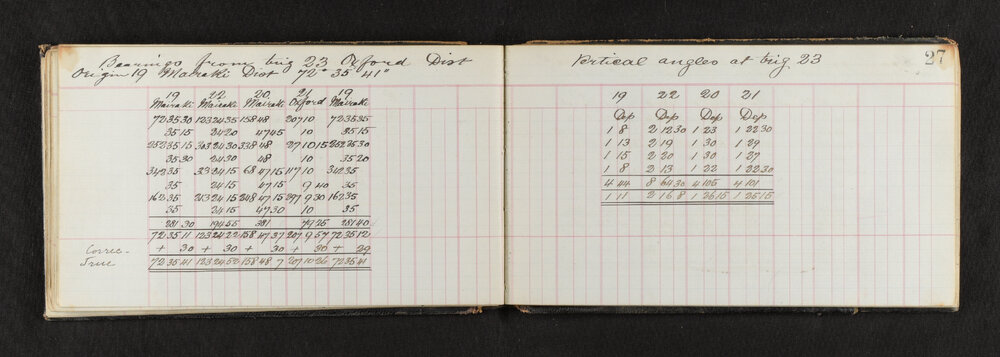 Bearings from trig 23 Oxford Dist
Origin 19 Mairaki Dist 72° 35' 41"
19 22 20 21 19
Mairaki Mairaki Mairaki Oxford Mairaki
72 35 30 123 24 35 158 48 207 10 72 35 35
35 15 24 20 47 45 10 35 15
252 35 15 303 24 30 338 48 27 10 15 252 35 30
35 30 24 30 48 10 35 20
342 35 33 24 15 68 47 15 117 10 342 35
35 24 15 47 15 9 40 35
162 35 213 24 15 248 47 15 297 9 30 162 35
35 24 15 47 30 10 35
281 30 194 55 381 79 25 281 40
72 35 11 123 24 22 158 47 37 207 9 57 72 35 12
Correc- + 30 + 30 + 30 + 30 + 29
True 72 35 41 123 24 52 158 48 7 207 10 26 72 35 41
27
Vertical angles at trig 23
19 22 20 21
Dep Dep Dep Dep
1 8 2 12 30 1 23 1 22 30
1 13 2 19 1 30 1 29
1 15 2 20 1 30 1 27
1 8 2 13 1 22 1 22 30
4 44 8 64 30 4 105 4 101
1 11 2 16 8 1 26 15 1 25 15